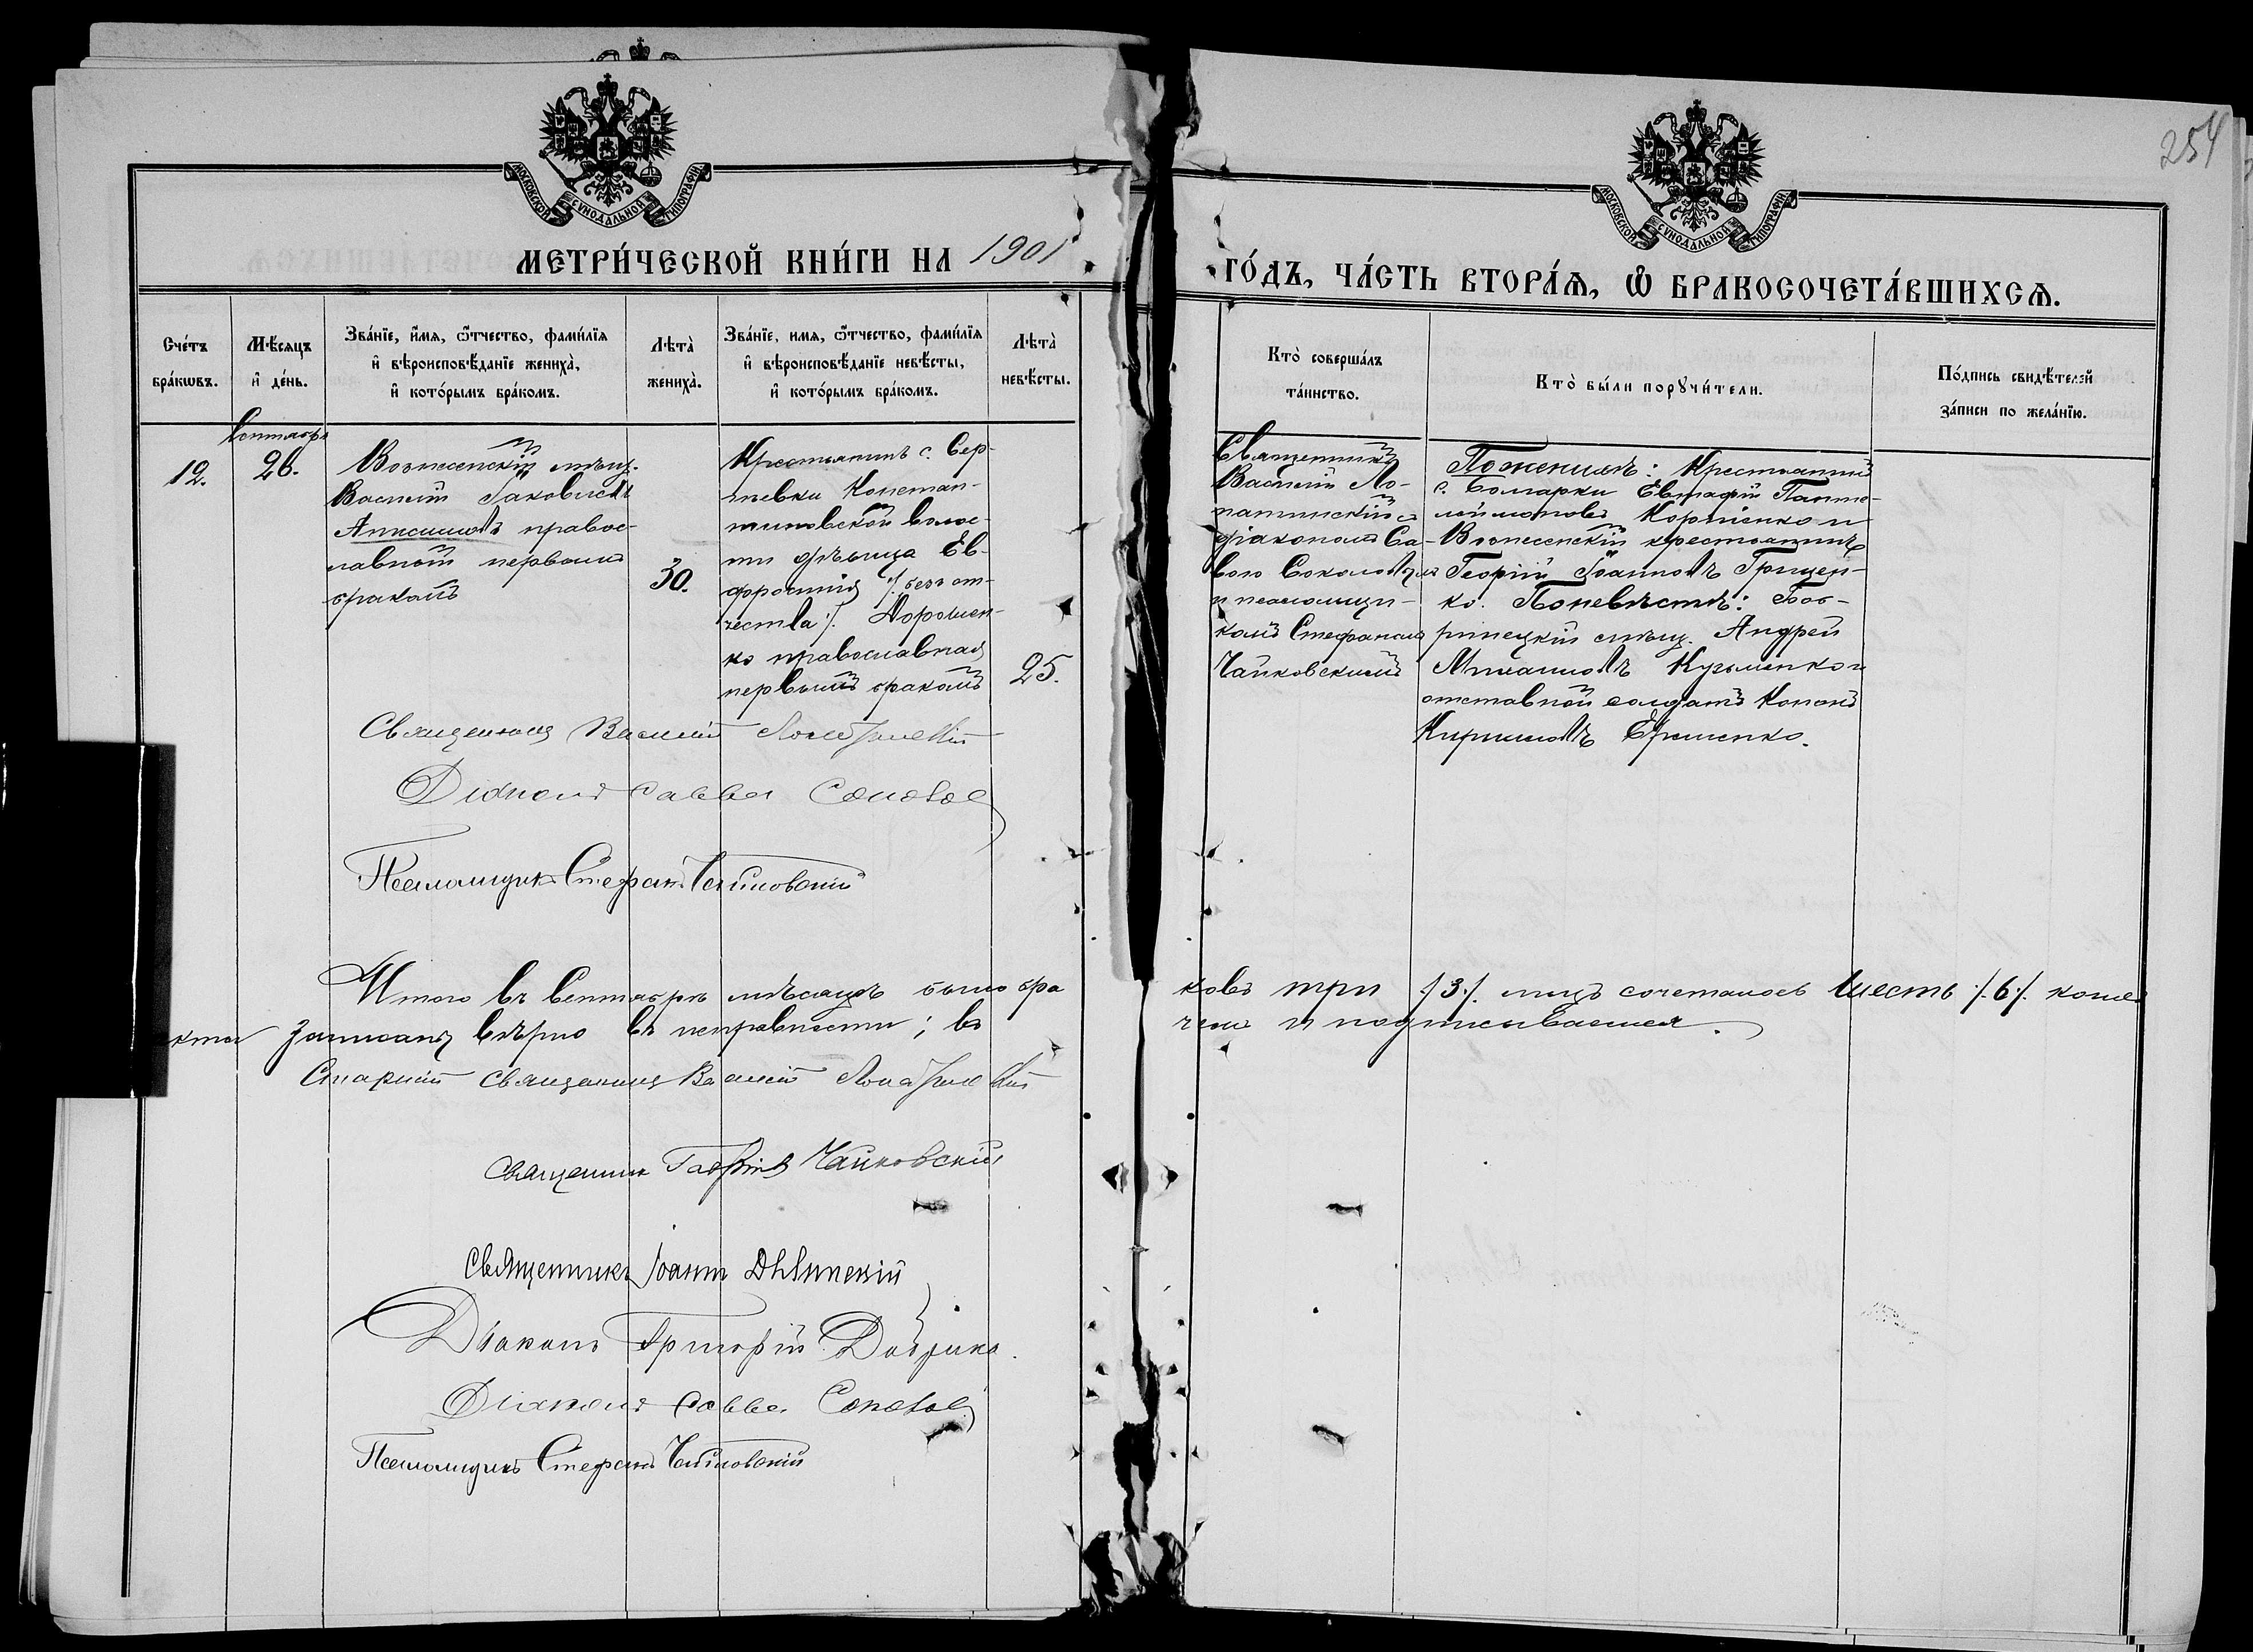 254
МОСКОВСКОЙ СѴНОДАЛЬНОЙ ТИПОГРАФІИ
МОСКОВСКОЙ СѴНОДАЛЬНОЙ ТИПОГРАФІИ
МЕТРИ́ЧЕСКОЙ КНИ́ГИ НА 1901 ГО́ДЪ, ЧА́СТЬ ВТОРА́Я, Ѡ҆ БРАКОСОЧЕТА́ВШИХСЯ.
Сче́тъ
бра́кѡвъ.
Мѣ́сяцъ
и҆ де́нь.
Зва́нїе, и҆́мя, ѻ҆́тчество, фами́лїя
и҆ вѣроисповѣ́данїе жениха̀,
и҆ кото́рымъ бра́комъ.
Лѣта̀
жениха̀.
Зва́нїе, имя, ѻ҆́тчество, фами́лїя
и҆ вѣроисповѣ́данїе невѣ́сты,
и҆ кото́рымъ бра́комъ.
Лѣта̀
невѣ́сты.
Кто̀ соверша́лъ
та́инство.
Кто̀ бы́ли порꙋчи́тели.
По́дпись свидѣ́телей
за́писи по жела́нїю.
12.
Сентябрь
26.
Вознесенскій мѣщ.
Василій Іаковлевъ
Анисимовъ правос-
лавный первымъ
бракомъ
30.
Крестьянинъ с. Сер-
Констан-
тиновской волос-
ти дѣвица Ев-
фросинія /. безъ от-
чества /. Дорошен-
ко православная
первымъ бракомъ
25.
Священникъ
Василій Ло-
патинскій съ
діакономъ Са-
вою Соколовымъ
и псаломщи-
комъ Стефаномъ
Чайковскимъ
По женихѣ: Крестьянинъ
с. Болгарки Евтафій Панте-
леймоновъ Корніенко и
Вознесенскій крестьянинъ
Георгій Іоанновъ Грицен-
ко. По невѣстѣ: Боб-
ринецкій мѣщ. Андрей
Михаиловъ Кузьменко и
отставной солдатъ Кононъ
Кирилловъ Ефименко.
Священникъ Василій Лопатинскій
Діаконъ Савва Соколов
Псаломщикъ Стефанъ Чайковскій
Итого въ Сентябрѣ мѣсяцѣ было бра
ковъ три /.3./. лицъ сочеталось шесть /.6./. коихъ
акты записаны вѣрно въ исправности; въ
чемъ и подписываемся.
Старшій Священникъ Василій Лопатинскій
Священник Гавріил Чайковскій
Священникъ Іоаннъ
Діаконъ Григорій
Діаконъ Савва Соколов
Псаломщикъ Стефанъ Чайковскій